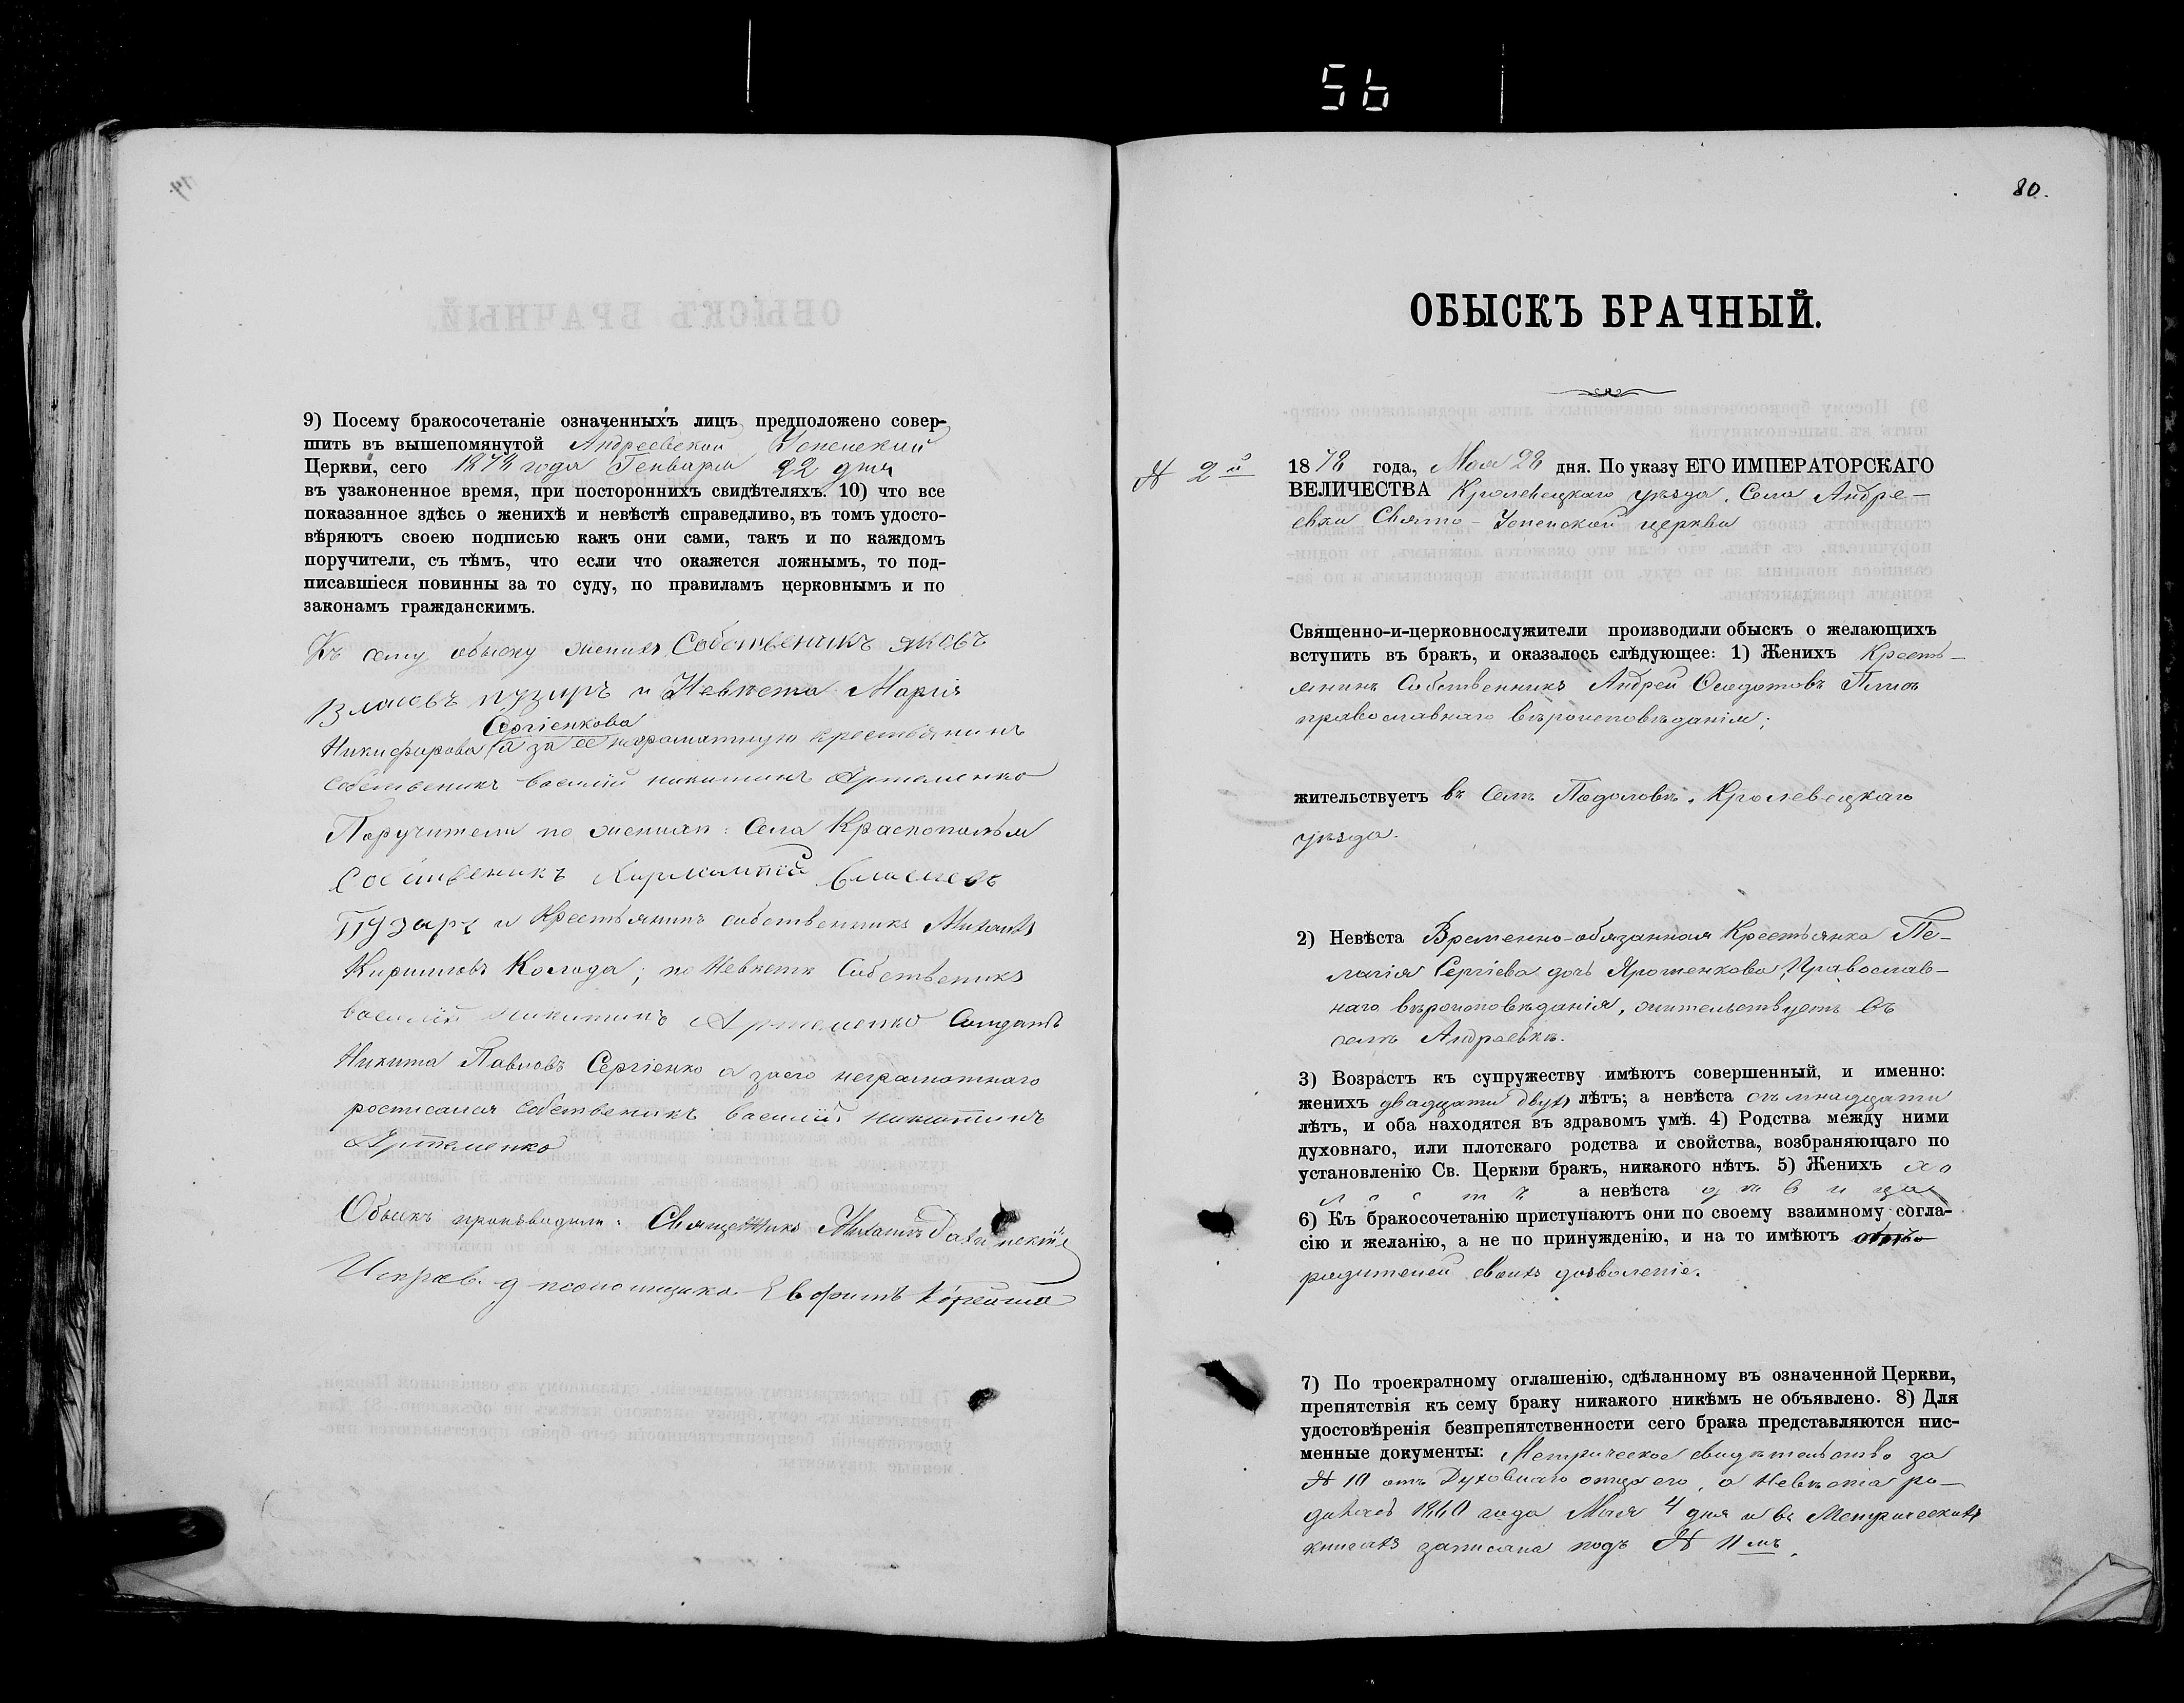 56
9) Посему бракосочетаніе означенныхъ лицъ предположено совер-
шить въ вышепомянутой Андреевской Успенской
Церкви, сего 1878 года Генваря 22 дня
въ узаконенное время, при постороннихъ свидѣтеляхъ. 10) что все
показанное здѣсь о женихѣ и невѣстѣ справедливо, въ томъ удосто-
вѣряютъ своею подписью какъ они сами, такъ и по каждомъ
поручители, съ тѣмъ, что если что окажется ложнымъ, то под-
писавшіеся повинны за то суду, по правиламъ церковнымъ и по
законамъ гражданскимъ.
Къ сему обыску женихъ Собственикъ яковъ
Власовъ пузиръ и Невѣста Марія
Сергіенкова
Никифорова а за её неграматную крестьянинъ
собственикъ василій никитинъ Артеменко
Поручители по женихѣ: Села Краснополья
Собственикъ власиевъ
Пузаръ и Крестьянинъ собственникъ Михаилъ
Кириловъ Колода; по Невѣстѣ Собственикъ
василій никитинъ Артеменко Солдатъ
Никита Павловъ Сергіенко а заего неграмотнаго
росписался собственикъ василій никитинъ
Артеменко
Обыскъ производили: Священникъ Михаилъ
Исправ. д псаломщика Евфимъ
80.
ОБЫСКЪ БРАЧНЫЙ.
№ 2й
1878 года, Мая 28 дня. По указу ЕГО ИМПЕРАТОРСКАГО
ВЕЛИЧЕСТВА Кролевецкаго уѣзда. Села Андре-
евки Свято-Успенской церкви
Священно-и-церковнослужители производили обыскъ о желающихъ
вступить въ бракъ, и оказалось слѣдующее: 1) Женихъ Кресть-
янинъ Собственникъ Андрей Федотовъ
православнаго вѣроисповѣданія;
жительствуетъ въ Селѣ Подоловѣ, Кролевецкаго
уѣзда.
2) Невѣста Временно-обязанная Крестьянка Пе-
лагія Сергіева дочь Ярошенкова, Православ-
наго вѣроисповѣданія, жительствуетъ въ
селѣ Андреевкѣ.
3) Возрастъ къ супружеству имѣютъ совершенный, и именно:
женихъ двадцати двухъ лѣтъ; а невѣста осьмнадцати
лѣтъ, и оба находятся въ здравомъ умѣ. 4) Родства между ними
духовнаго, или плотскаго родства и свойства, возбраняющаго по
установленію Св. Церкви бракъ, никакого нѣтъ. 5) Женихъ хо
лостъ а невѣста дѣвица
6) Къ бракосочетанію приступаютъ они по своему взаимному согла-
сію и желанію, а не по принужденію, и на то имѣютъ
родителей своихъ дозволеніе.
7) По троекратному оглашенію, сдѣланному въ означенной Церкви,
препятствія къ сему браку никакого никѣмъ не объявлено. 8) Для
удостовѣренія безпрепятственности сего брака представляются пис-
менные документы: Метрическое свидѣтельство за
№ 10 отъ Духовнаго отца его, а Невѣста ро-
дилась 1860 года Мая 4 дня и въ Метрическихъ
книгахъ записана подъ № 11мъ.